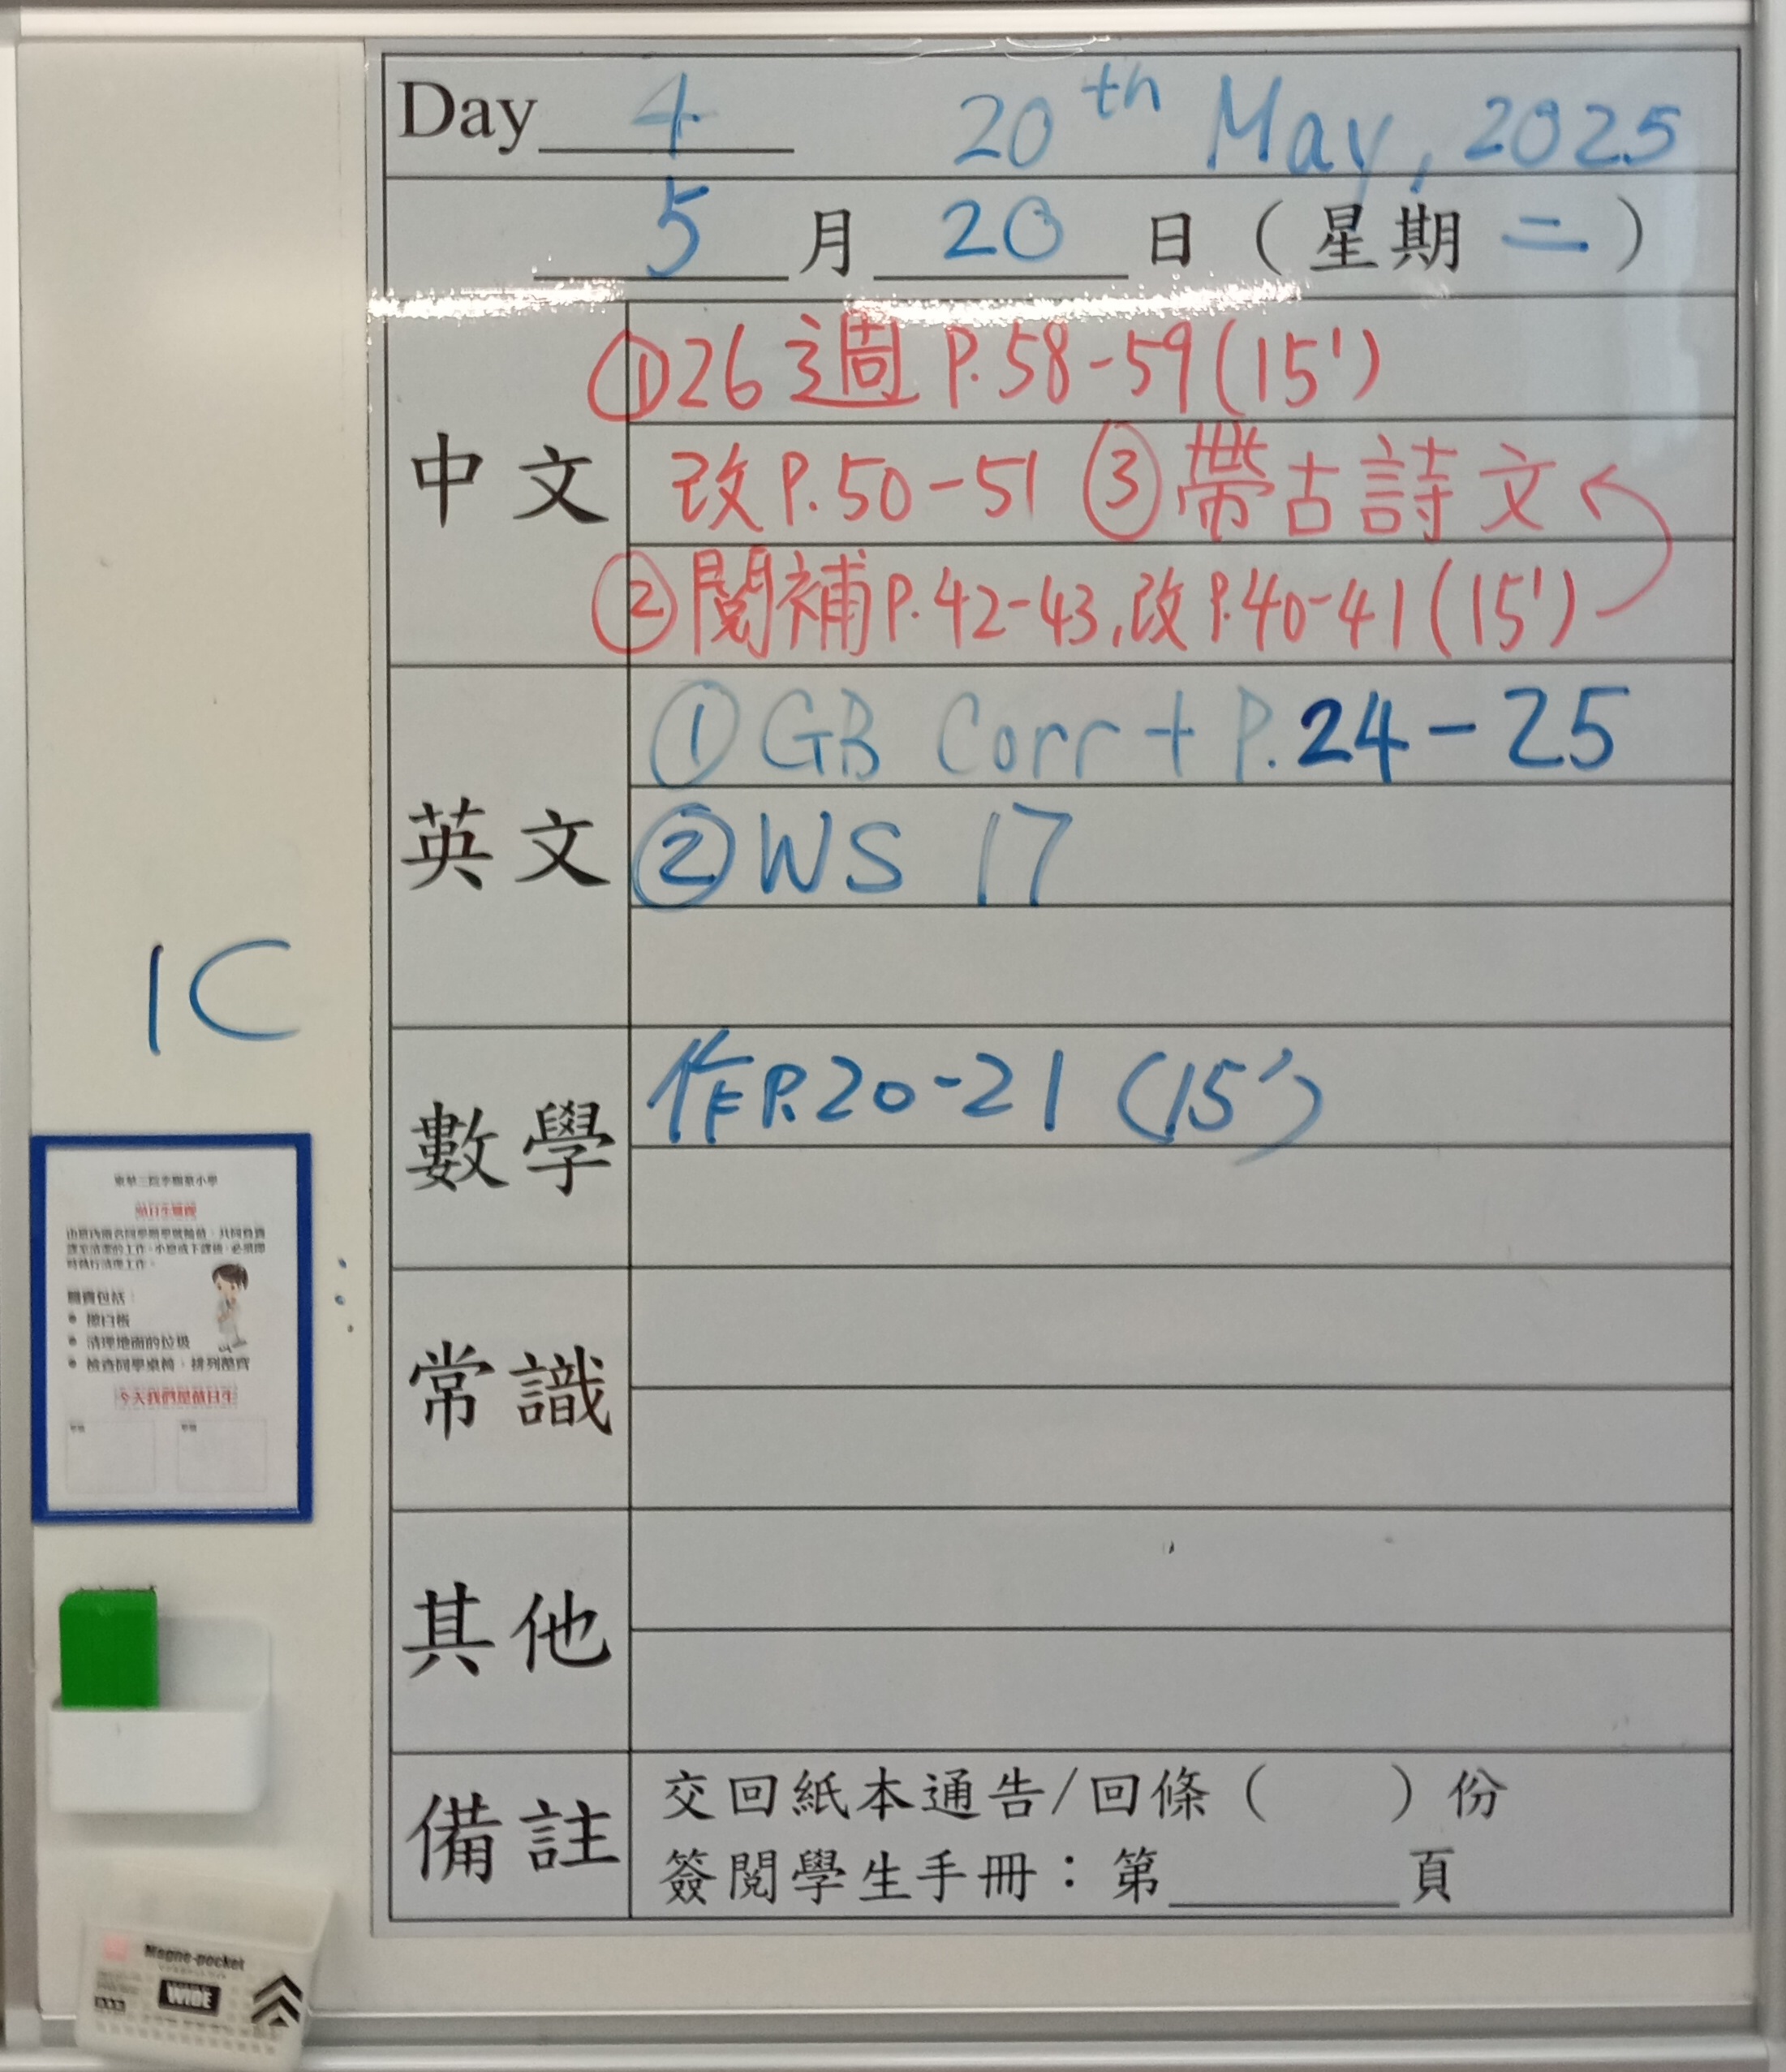 Day 4 20th May, 2025
5 月 20 日 ( 星期 二 )
中文
①26週 P.58-59(15')
改P.50-51 ③帶古詩文
②閱補P.42-43,改P.40-41(15')
英文
①GB Corr + P.24-25
②WS 17
數學
作P.20-21 (15')
常識
其他
備註
交回紙本通告/回條 ( ) 份
簽閱學生手冊：第______頁
1C
職責包括：
• 擦白板
• 清理地面的垃圾
• 檢查同學桌椅，排列整齊
今天我們是值日生
Magne-pocket
WIDE